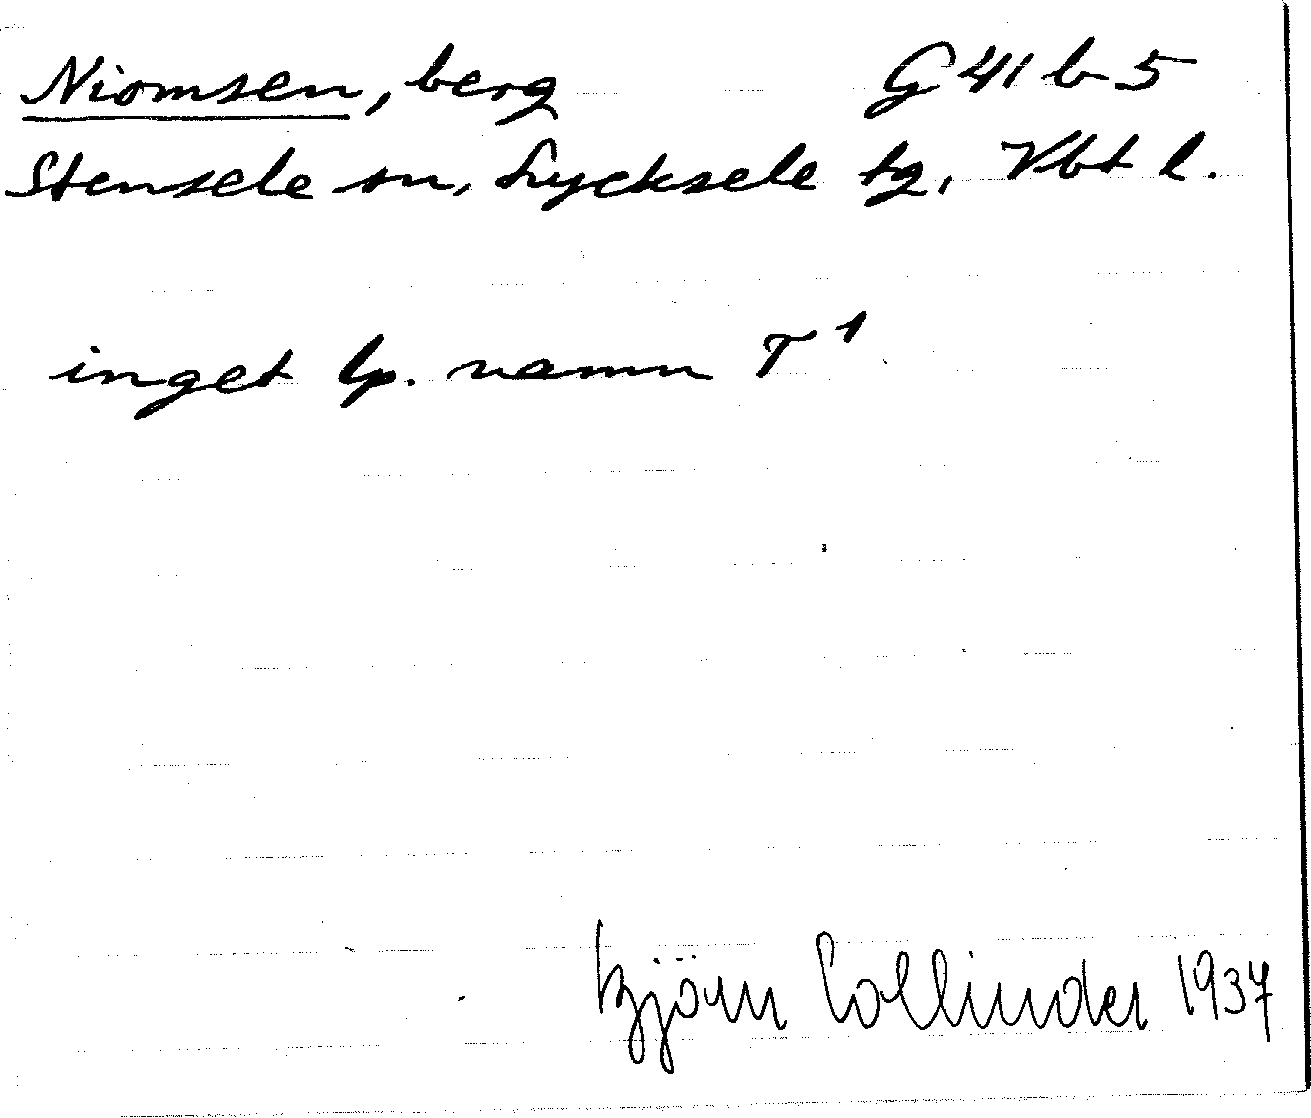 Niomsen, berg G 41 b 5
Stensele sn, Lycksele tg, Vbt l.
inget lp. namn T 1
Björn Collinder 1937